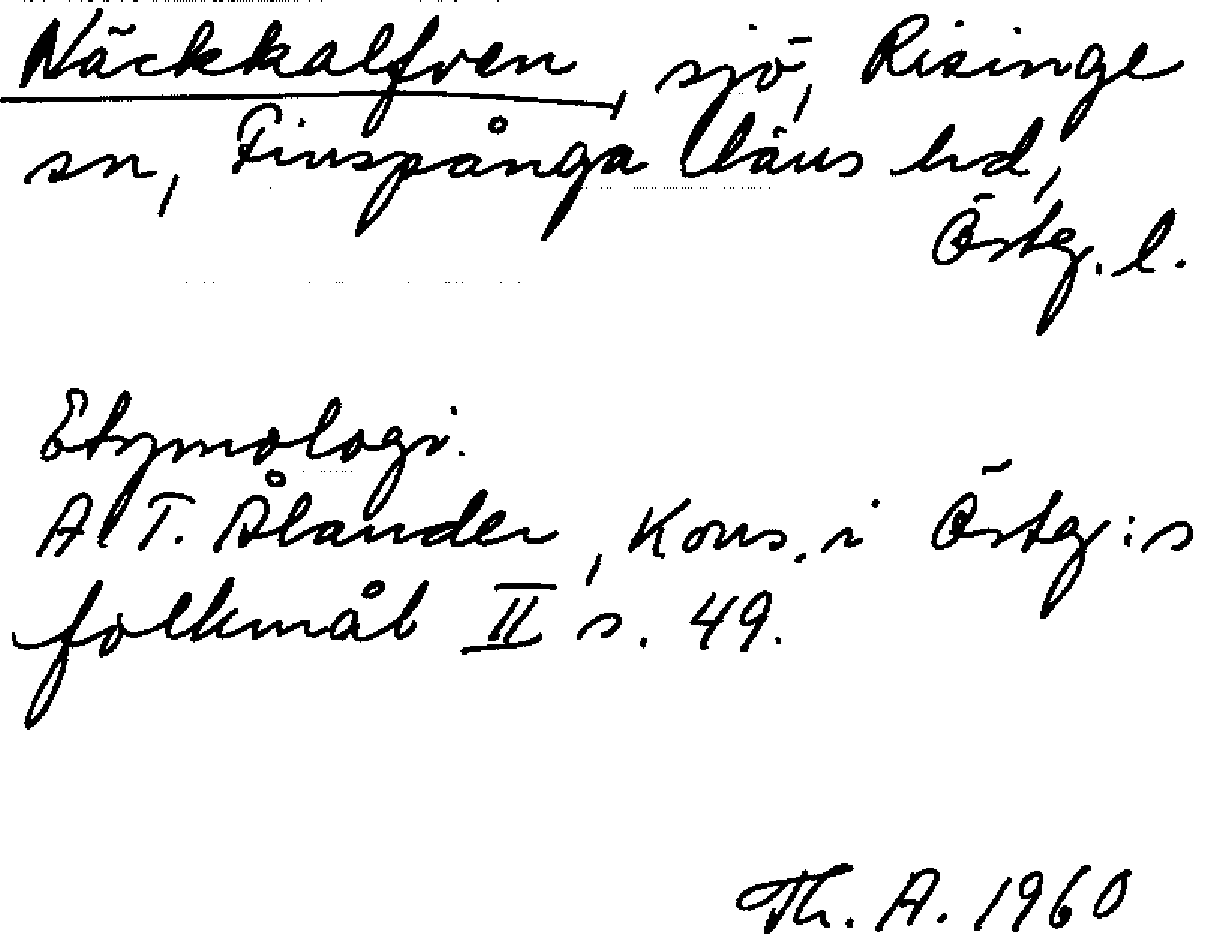 Näckkalfven, sjö, Risinge
sn, Finspånga läns hd,
Östg. l.
Etymologi.
A. T. Ålander, Kons. i Östg:s
folkmål II s. 49.
Th. A. 1960